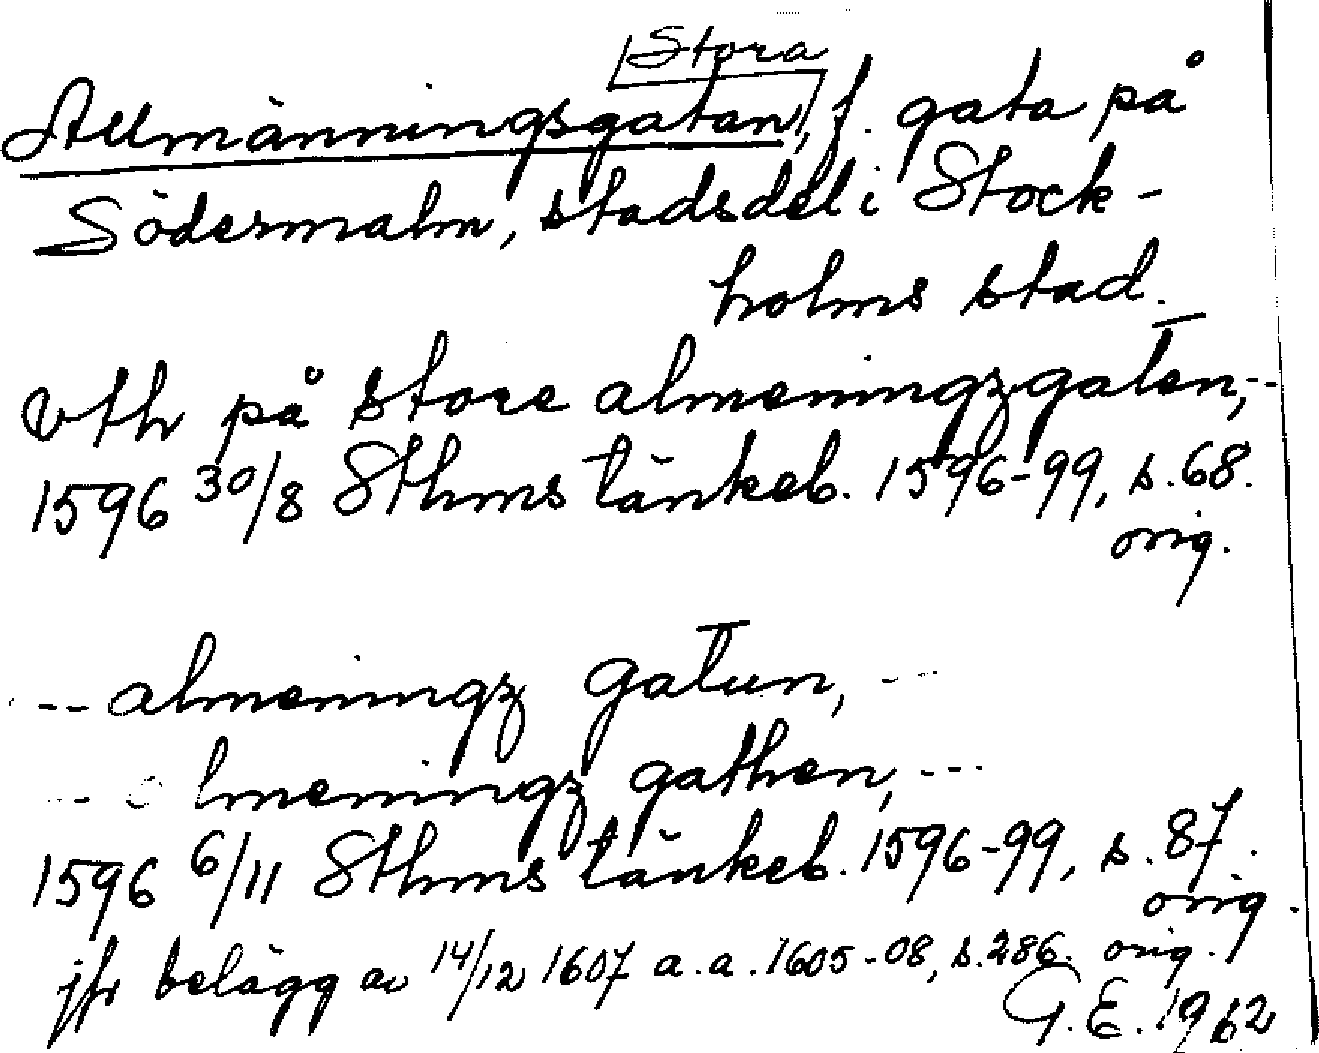 Stora
Allmänningsgatan, f. gata på
Södermalm, stadsdel i Stock-
holms stad.
vth på store almeningzgaten,--
1596 30/8 Sthms tänkeb. 1596-99, s.68.
orig.
-- almeningz gatun, ---
-- almeningz gathen, ---
1596 6/11 Sthms tänkeb. 1596-99, s. 87.
orig.
jfr belägg av 14/12 1607 a.a. 1605-08, s.286. orig.
G.E. 1962